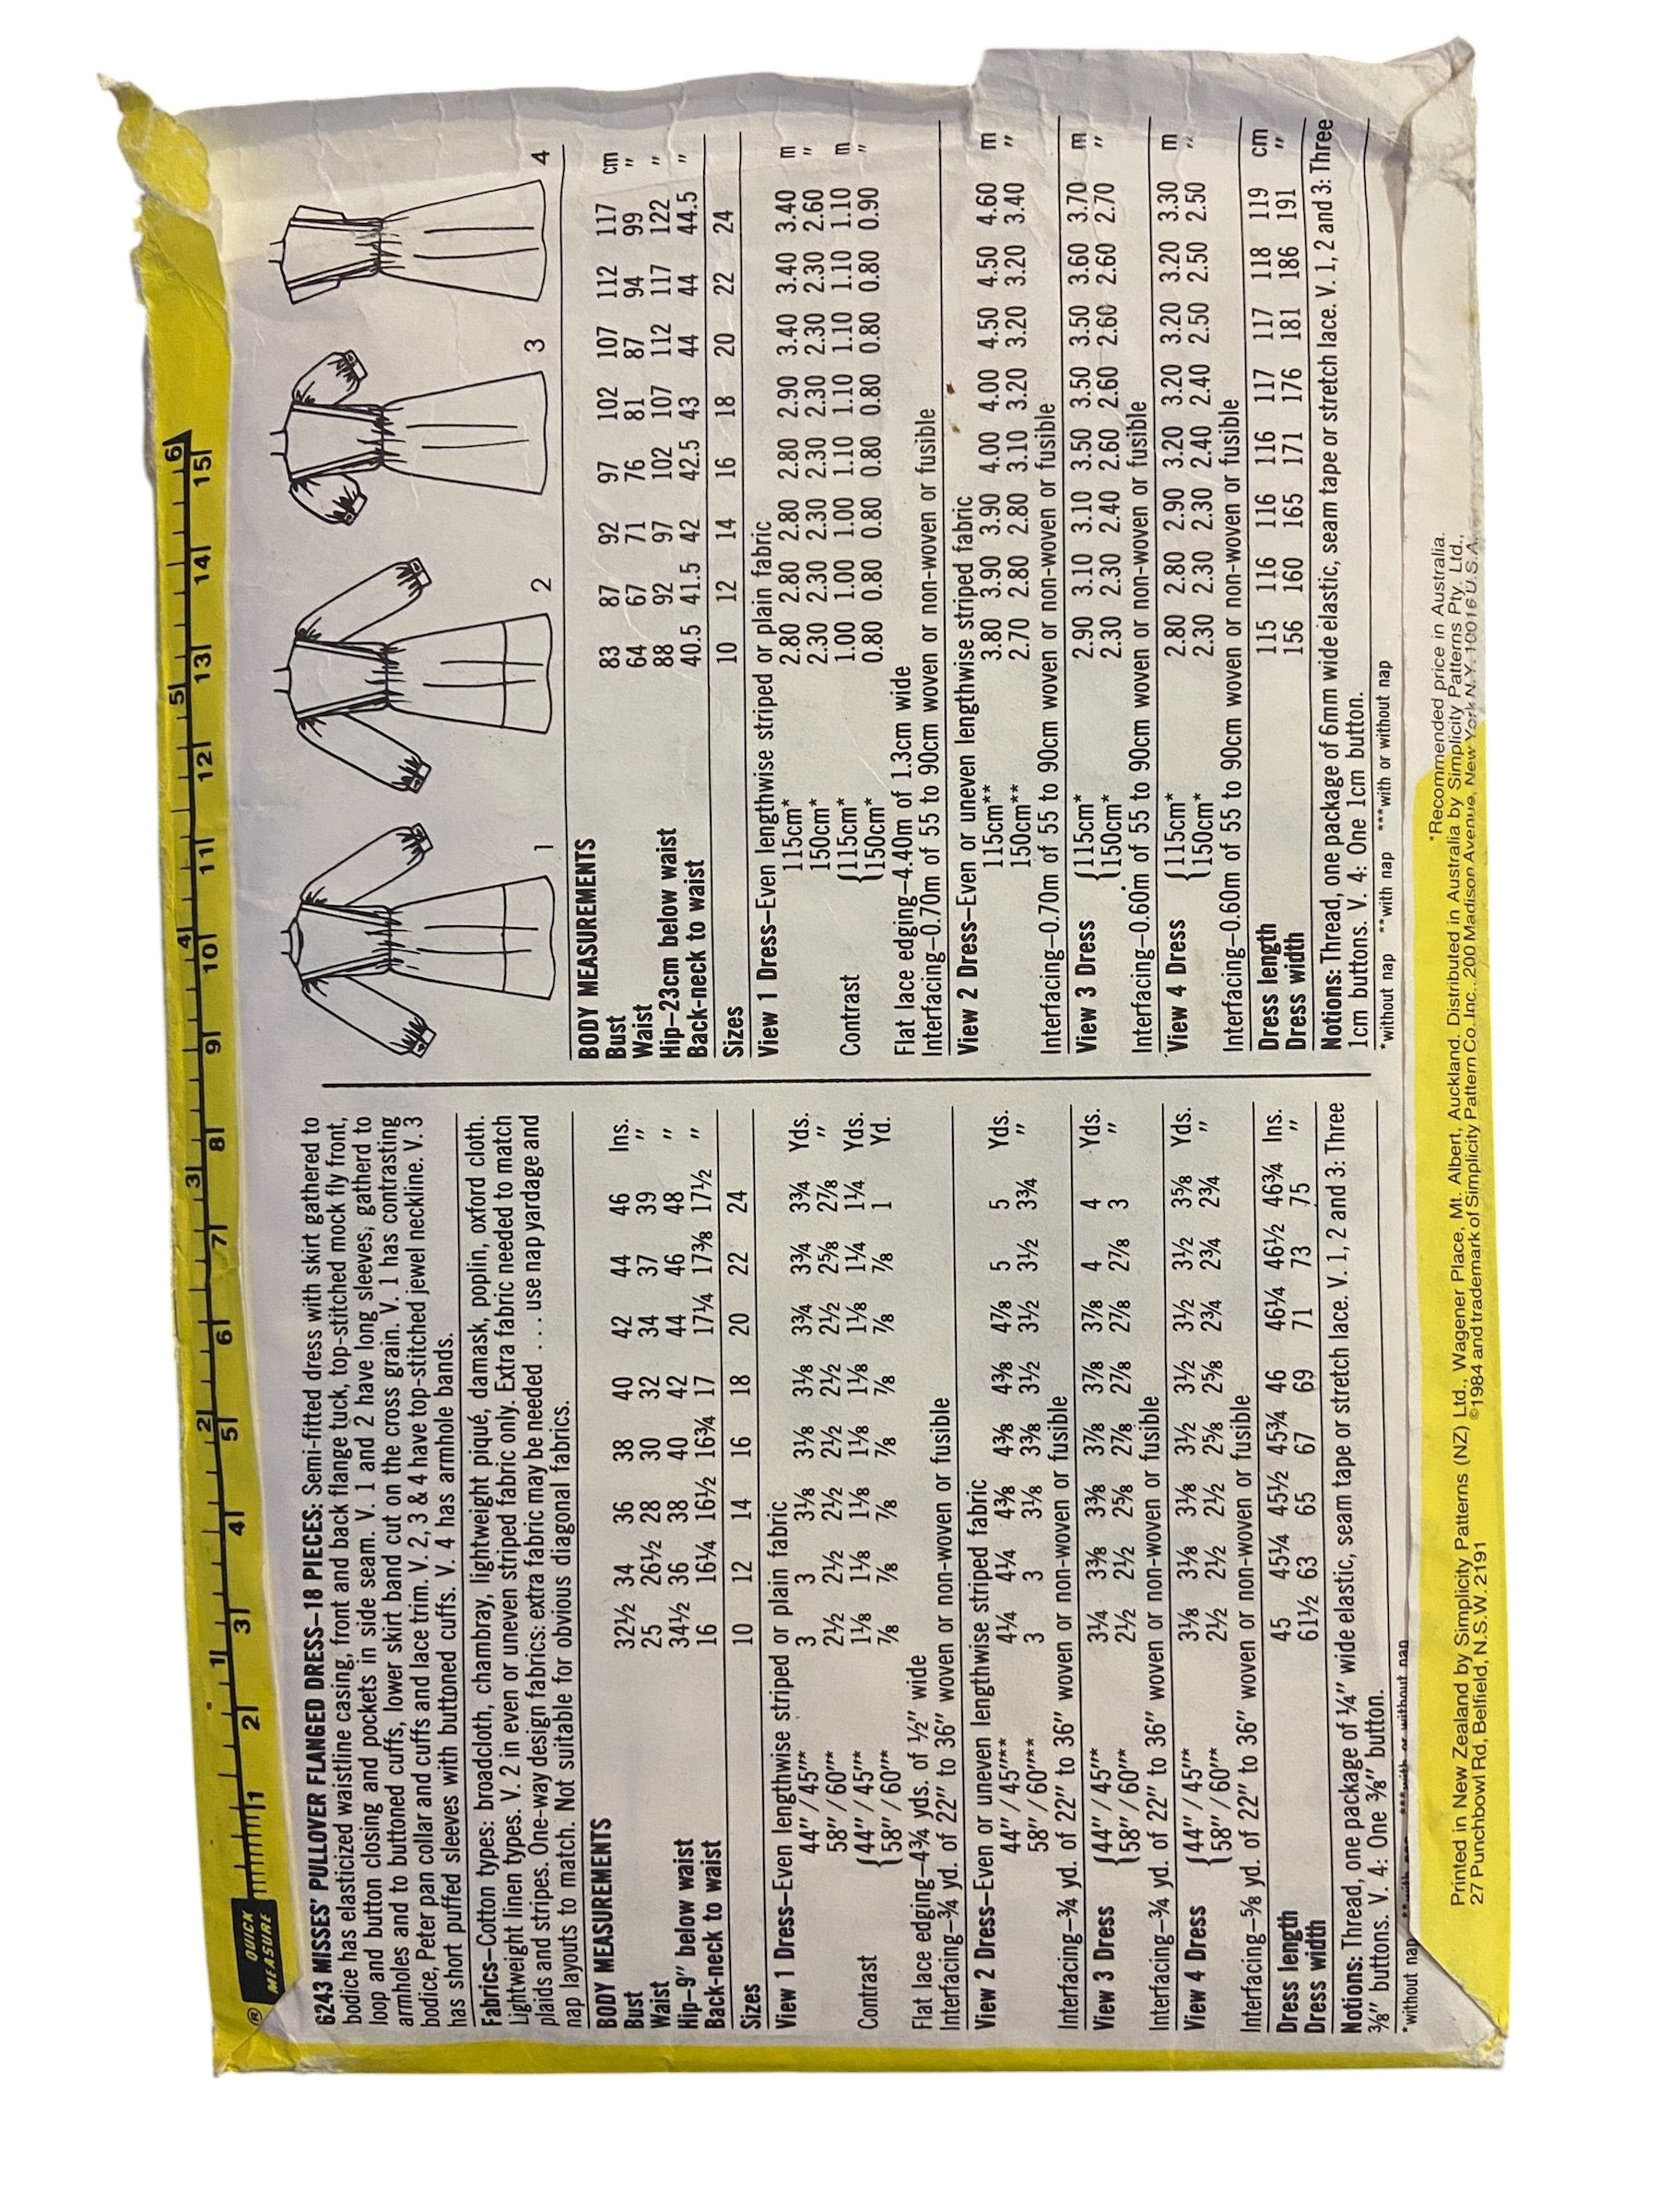 ® QUICK MEASURE
1 2 3 4 5 6
1 2 3 4 5 6 7 8 9 10 11 12 13 14 15
6243 MISSES' PULLOVER FLANGED DRESS–18 PIECES: Semi-fitted dress with skirt gathered to
bodice has elasticized waistline casing, front and back flange tuck, top-stitched mock fly front,
loop and button closing and pockets in side seam. V. 1 and 2 have long sleeves, gatherd to
armholes and to buttoned cuffs, lower skirt band cut on the cross grain. V. 1 has contrasting
bodice, Peter pan collar and cuffs and lace trim. V. 2, 3 & 4 have top-stitched jewel neckline. V. 3
has short puffed sleeves with buttoned cuffs. V. 4 has armhole bands.
Fabrics–Cotton types: broadcloth, chambray, lightweight piqué, damask, poplin, oxford cloth.
Lightweight linen types. V. 2 in even or uneven striped fabric only. Extra fabric needed to match
plaids and stripes. One-way design fabrics: extra fabric may be needed . . . use nap yardage and
nap layouts to match. Not suitable for obvious diagonal fabrics.
BODY MEASUREMENTS
Bust 32½ 34 36 38 40 42 44 46 Ins.
Waist 25 26½ 28 30 32 34 37 39 ″
Hip–9″ below waist 34½ 36 38 40 42 44 46 48 ″
Back-neck to waist 16 16¼ 16½ 16¾ 17 17¼ 17⅜ 17½ ″
Sizes 10 12 14 16 18 20 22 24
View 1 Dress–Even lengthwise striped or plain fabric
44″/45″* 3 3 3⅛ 3⅛ 3⅛ 3¾ 3¾ 3¾ Yds.
58″/60″* 2½ 2½ 2½ 2½ 2½ 2½ 2⅝ 2⅞ ″
Contrast {44″/45″* 1⅛ 1⅛ 1⅛ 1⅛ 1⅛ 1⅛ 1¼ 1¼ Yds.
{58″/60″* ⅞ ⅞ ⅞ ⅞ ⅞ ⅞ ⅞ 1 Yd.
Flat lace edging–4¾ yds. of ½″ wide
Interfacing–¾ yd. of 22″ to 36″ woven or non-woven or fusible
View 2 Dress–Even or uneven lengthwise striped fabric
44″/45″** 4¼ 4¼ 4⅜ 4⅜ 4⅜ 4⅞ 5 5 Yds.
58″/60″** 3 3 3⅛ 3⅜ 3½ 3½ 3½ 3¾ ″
Interfacing–¾ yd. of 22″ to 36″ woven or non-woven or fusible
View 3 Dress {44″/45″* 3¼ 3⅜ 3⅜ 3⅞ 3⅞ 3⅞ 4 4 Yds.
{58″/60″* 2½ 2½ 2⅝ 2⅞ 2⅞ 2⅞ 2⅞ 3 ″
Interfacing–¾ yd. of 22″ to 36″ woven or non-woven or fusible
View 4 Dress {44″/45″* 3⅛ 3⅛ 3⅛ 3½ 3½ 3½ 3½ 3⅝ Yds.
{58″/60″* 2½ 2½ 2½ 2⅝ 2⅝ 2¾ 2¾ 2¾ ″
Interfacing–⅝ yd. of 22″ to 36″ woven or non-woven or fusible
Dress length 45 45¼ 45½ 45¾ 46 46¼ 46½ 46¾ Ins.
Dress width 61½ 63 65 67 69 71 73 75 ″
Notions: Thread, one package of ¼″ wide elastic, seam tape or stretch lace. V. 1, 2 and 3: Three
⅜″ buttons. V. 4: One ⅜″ button.
*without nap **with nap ***with or without nap
1 2 3 4
BODY MEASUREMENTS
Bust 83 87 92 97 102 107 112 117 cm
Waist 64 67 71 76 81 87 94 99 ″
Hip–23cm below waist 88 92 97 102 107 112 117 122 ″
Back-neck to waist 40.5 41.5 42 42.5 43 44 44 44.5 ″
Sizes 10 12 14 16 18 20 22 24
View 1 Dress–Even lengthwise striped or plain fabric
115cm* 2.80 2.80 2.80 2.80 2.90 3.40 3.40 3.40 m
150cm* 2.30 2.30 2.30 2.30 2.30 2.30 2.30 2.60 ″
Contrast {115cm* 1.00 1.00 1.00 1.10 1.10 1.10 1.10 1.10 m
{150cm* 0.80 0.80 0.80 0.80 0.80 0.80 0.80 0.90 ″
Flat lace edging–4.40m of 1.3cm wide
Interfacing–0.70m of 55 to 90cm woven or non-woven or fusible
View 2 Dress–Even or uneven lengthwise striped fabric
115cm** 3.80 3.90 3.90 4.00 4.00 4.50 4.50 4.60 m
150cm** 2.70 2.80 2.80 3.10 3.20 3.20 3.20 3.40 ″
Interfacing–0.70m of 55 to 90cm woven or non-woven or fusible
View 3 Dress {115cm* 2.90 3.10 3.10 3.50 3.50 3.50 3.60 3.70 m
{150cm* 2.30 2.30 2.40 2.60 2.60 2.60 2.60 2.70 ″
Interfacing–0.60m of 55 to 90cm woven or non-woven or fusible
View 4 Dress {115cm* 2.80 2.80 2.90 3.20 3.20 3.20 3.20 3.30 m
{150cm* 2.30 2.30 2.30 2.40 2.40 2.50 2.50 2.50 ″
Interfacing–0.60m of 55 to 90cm woven or non-woven or fusible
Dress length 115 116 116 116 117 117 118 119 cm
Dress width 156 160 165 171 176 181 186 191 ″
Notions: Thread, one package of 6mm wide elastic, seam tape or stretch lace. V. 1, 2 and 3: Three
1cm buttons. V. 4: One 1cm button.
*without nap **with nap ***with or without nap
*Recommended price in Australia.
Printed in New Zealand by Simplicity Patterns (NZ) Ltd., Wagener Place, Mt. Albert, Auckland. Distributed in Australia by Simplicity Patterns Pty. Ltd.,
27 Punchbowl Rd, Belfield, N.S.W. 2191 ©1984 and trademark of Simplicity Pattern Co. Inc., 200 Madison Avenue, New York N.Y. 10016 U.S.A.